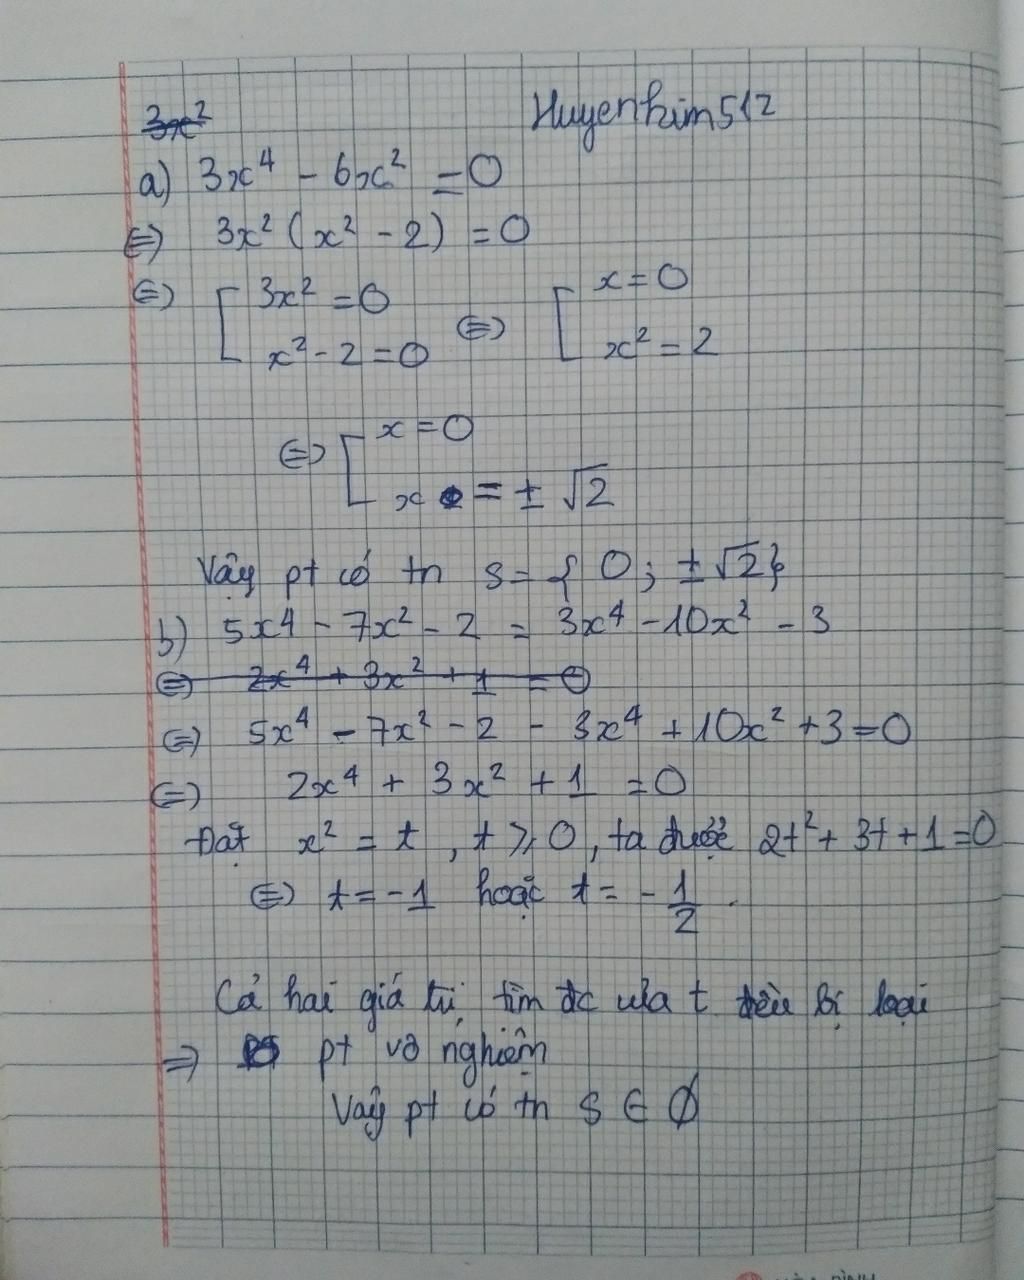 3x²
Huyenkim512
a) 3x⁴ - 6x² = 0
⇔ 3x² (x² - 2) = 0
⇔ [ 3x² = 0 ⇔ [ x = 0
x² - 2 = 0 x² = 2
⇔ [ x = 0
x = ± √2
Vậy pt có tn S = { 0; ± √2}
b) 5x⁴ - 7x² - 2 = 3x⁴ - 10x² - 3
⇔ 2x⁴ + 3x² + 1 = 0
⇔ 5x⁴ - 7x² - 2 - 3x⁴ + 10x² + 3 = 0
⇔ 2x⁴ + 3x² + 1 = 0
Đặt x² = t, t ⩾ 0, ta được 2t² + 3t + 1 = 0
⇔ t = -1 hoặc t = - 1/2 .
Cả hai giá trị tìm đc của t đều bị loại
⇒ pt vô nghiệm
Vậy pt có tn S ∈ ∅